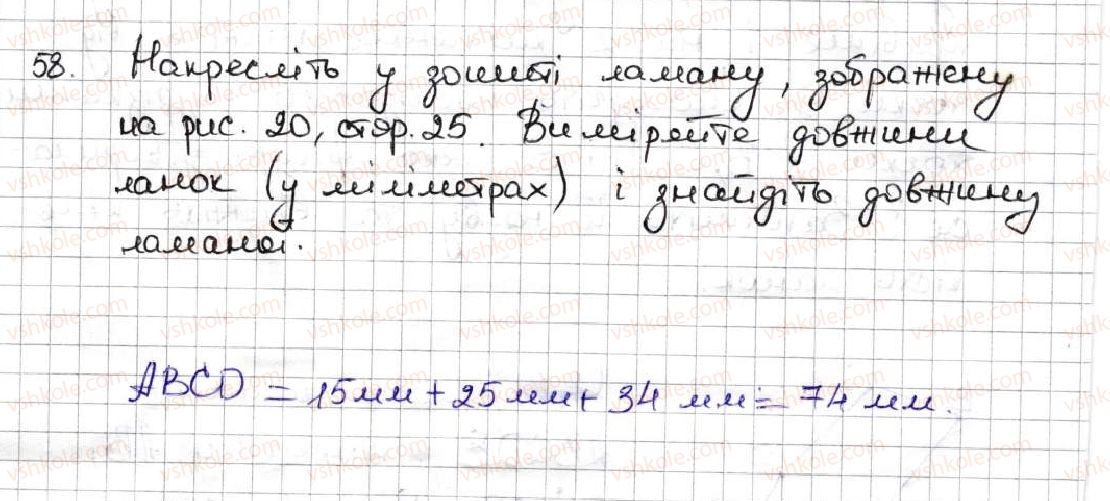 58. Накресліть у зошиті ламану, зображену
на рис. 20, стор. 25. Виміряйте довжини
ланок (у міліметрах) і знайдіть довжину
ламаної.
ABCD = 15 мм + 25 мм + 34 мм = 74 мм.